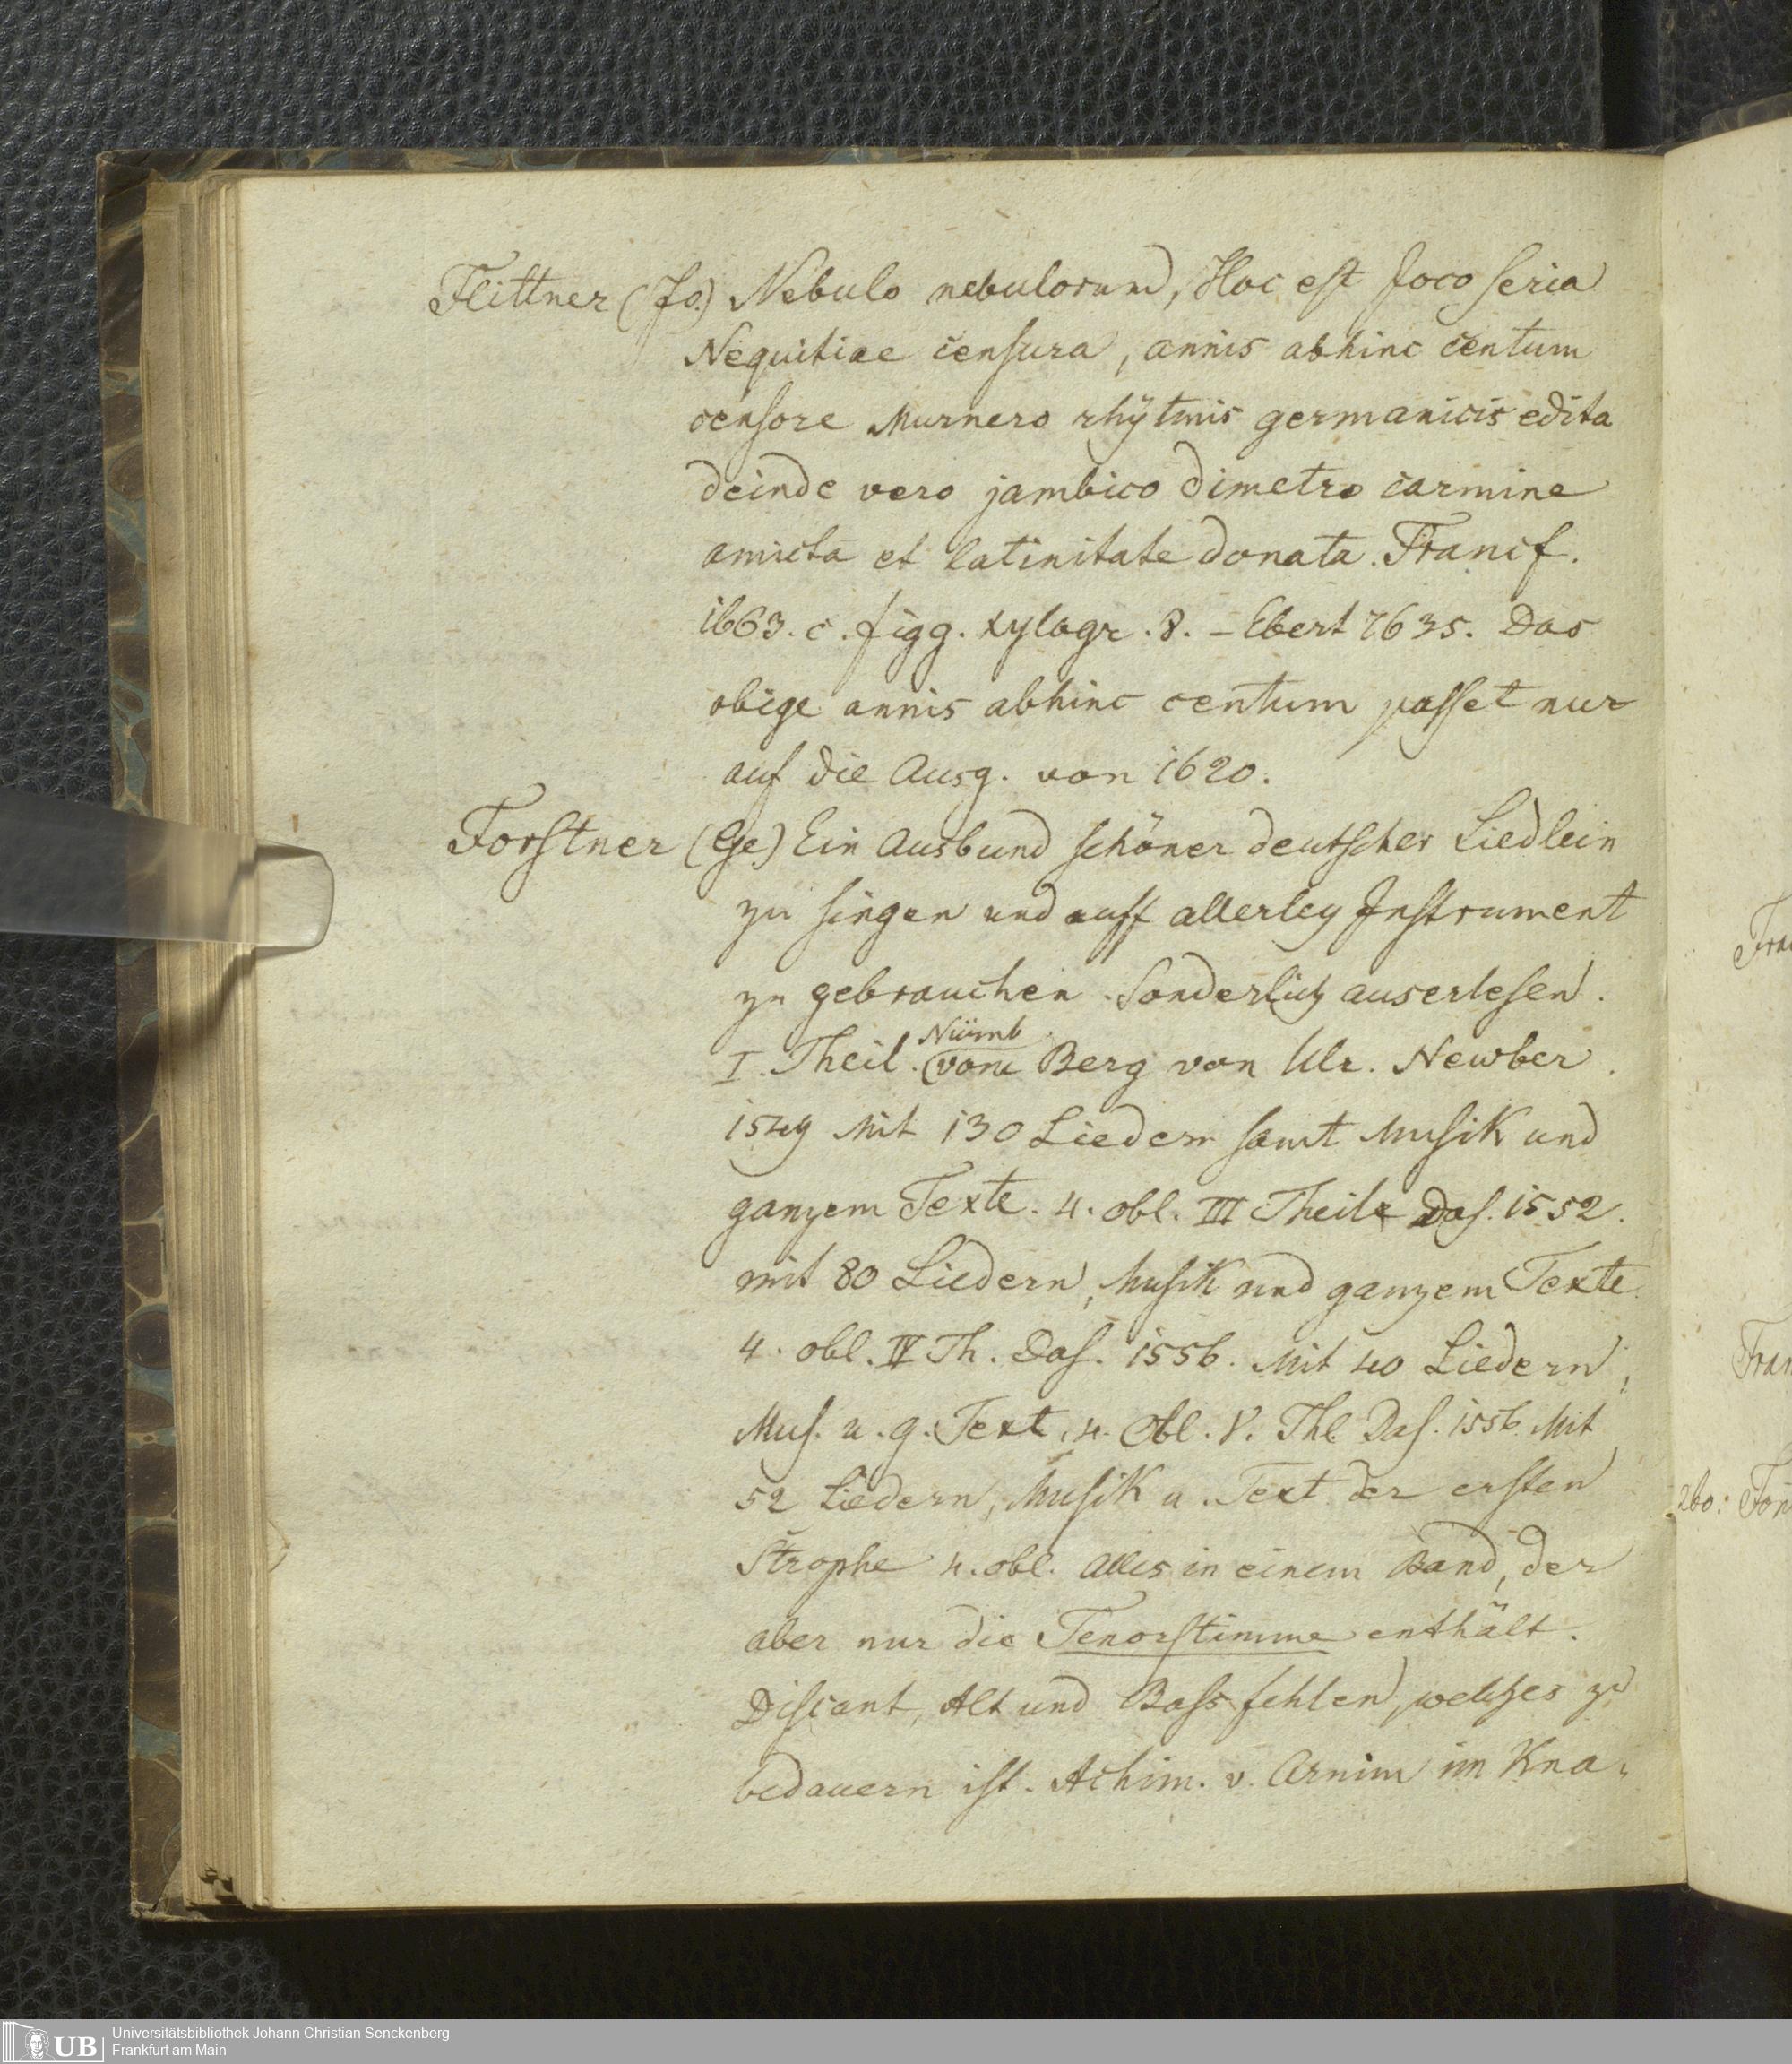 Flittner (Jo.) Nebulo nebulorum, Hoc est Joco seria
Nequitiae censura, annis abhinc centum
censore Murnero rhÿtmis germanicis edita
deinde vero jambico dimetro carmine
amicta et latinitate donata. Francf.
1663. c. figg. xylogr. 8. – Ebert 7635. Das
obige annis abhinc centum passet nur
auf die Ausg. von 1620.
Forstner (Ge) Ein Ausbund schöner deutscher Liedlein
zu singen und auff allerley Instrument
zu gebrauchen sonderlich auserlesen.
Nürnb.
I. Theil. vom Berg von Ulr. Newber.
1549 Mit 130 Liedern samt Musik und
ganzem Texte. 4. obl. III Theil Das. 1552.
mit 80 Liedern, Musik und ganzem Texte.
4. obl. IV Th. Das. 1556. Mit 40 Liedern,
Mus. u. g. Text, 4. Obl. V. Thl. Das. 1556. Mit
52 Liedern, Musik u. Text der ersten
Strophe 4. obl. Alles in einem Band, der
aber nur die Tenorstimme enthält.
Discant, Alt und Bass fehlen, welches zu
bedauern ist. Achim. v. Arnim im Kna-
Universitätsbibliothek Johann Christian Senckenberg
Frankfurt am Main
UB